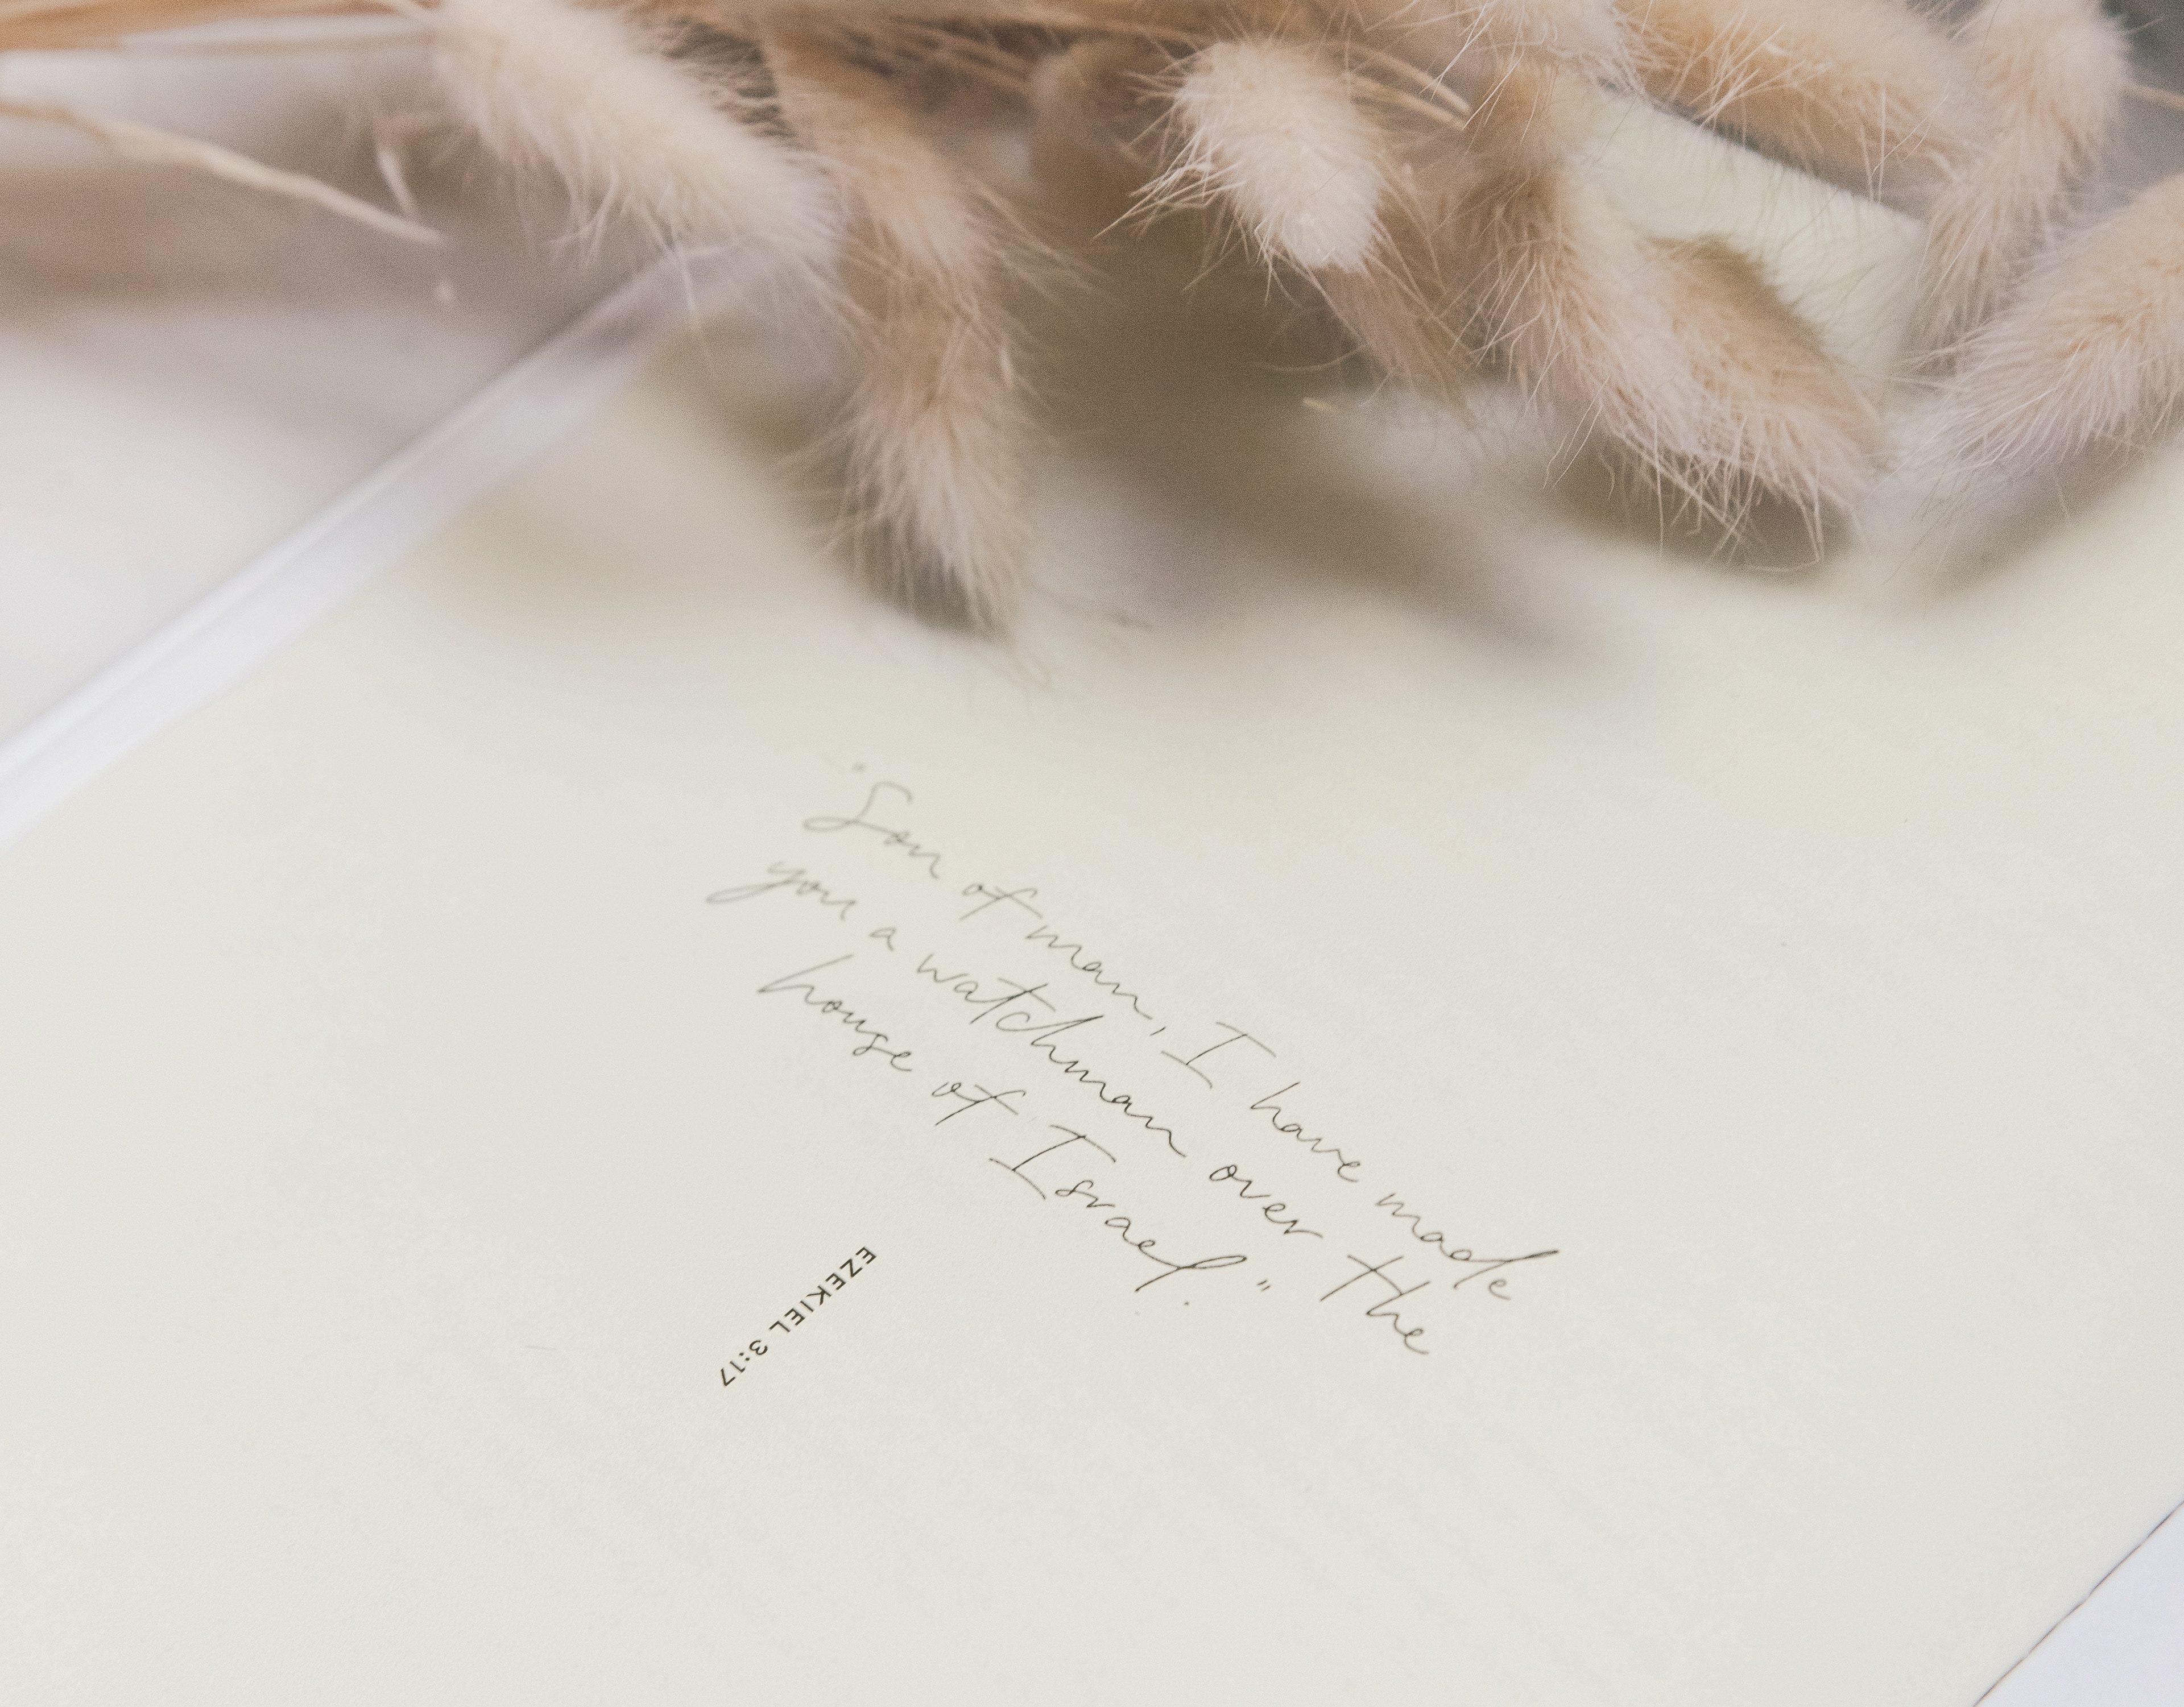 "Son of man, I have made
you a watchman over the
house of Israel."
EZEKIEL 3:17